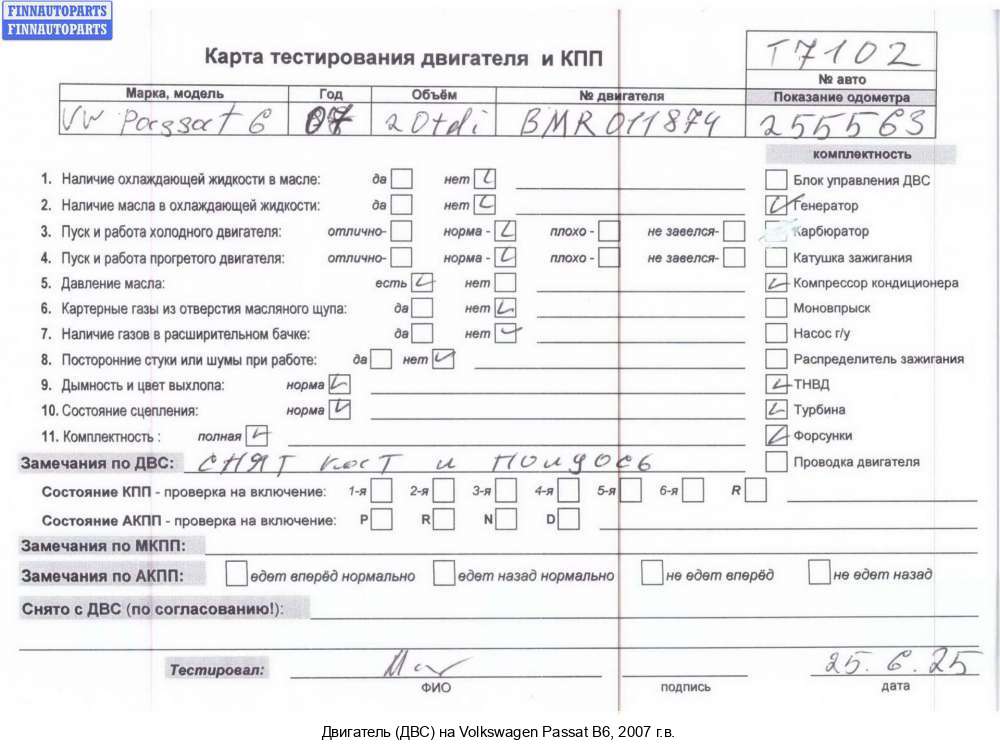 FINNAUTOPARTS
FINNAUTOPARTS
Карта тестирования двигателя и КПП
T7102
№ авто
Марка, модель Год Объём № двигателя Показание одометра
VW Passat 6 07 2.0tdi BMR011874 255563
комплектность
1. Наличие охлаждающей жидкости в масле: да нет Блок управления ДВС
2. Наличие масла в охлаждающей жидкости: да нет Генератор
3. Пуск и работа холодного двигателя: отлично- норма - плохо - не завелся- Карбюратор
4. Пуск и работа прогретого двигателя: отлично- норма - плохо - не завелся- Катушка зажигания
5. Давление масла: есть нет Компрессор кондиционера
6. Картерные газы из отверстия масляного щупа: да нет Моновпрыск
7. Наличие газов в расширительном бачке: да нет Насос г/у
8. Посторонние стуки или шумы при работе: да нет Распределитель зажигания
9. Дымность и цвет выхлопа: норма ТНВД
10. Состояние сцепления: норма Турбина
11. Комплектность : полная Форсунки
Замечания по ДВС: СНЯТ кост и полуось Проводка двигателя
Состояние КПП - проверка на включение: 1-я 2-я 3-я 4-я 5-я 6-я R
Состояние АКПП - проверка на включение: P R N D
Замечания по МКПП:
Замечания по АКПП: едет вперёд нормально едет назад нормально не едет вперёд не едет назад
Снято с ДВС (по согласованию!):
Тестировал: 25.6.25
ФИО подпись дата
Двигатель (ДВС) на Volkswagen Passat B6, 2007 г.в.